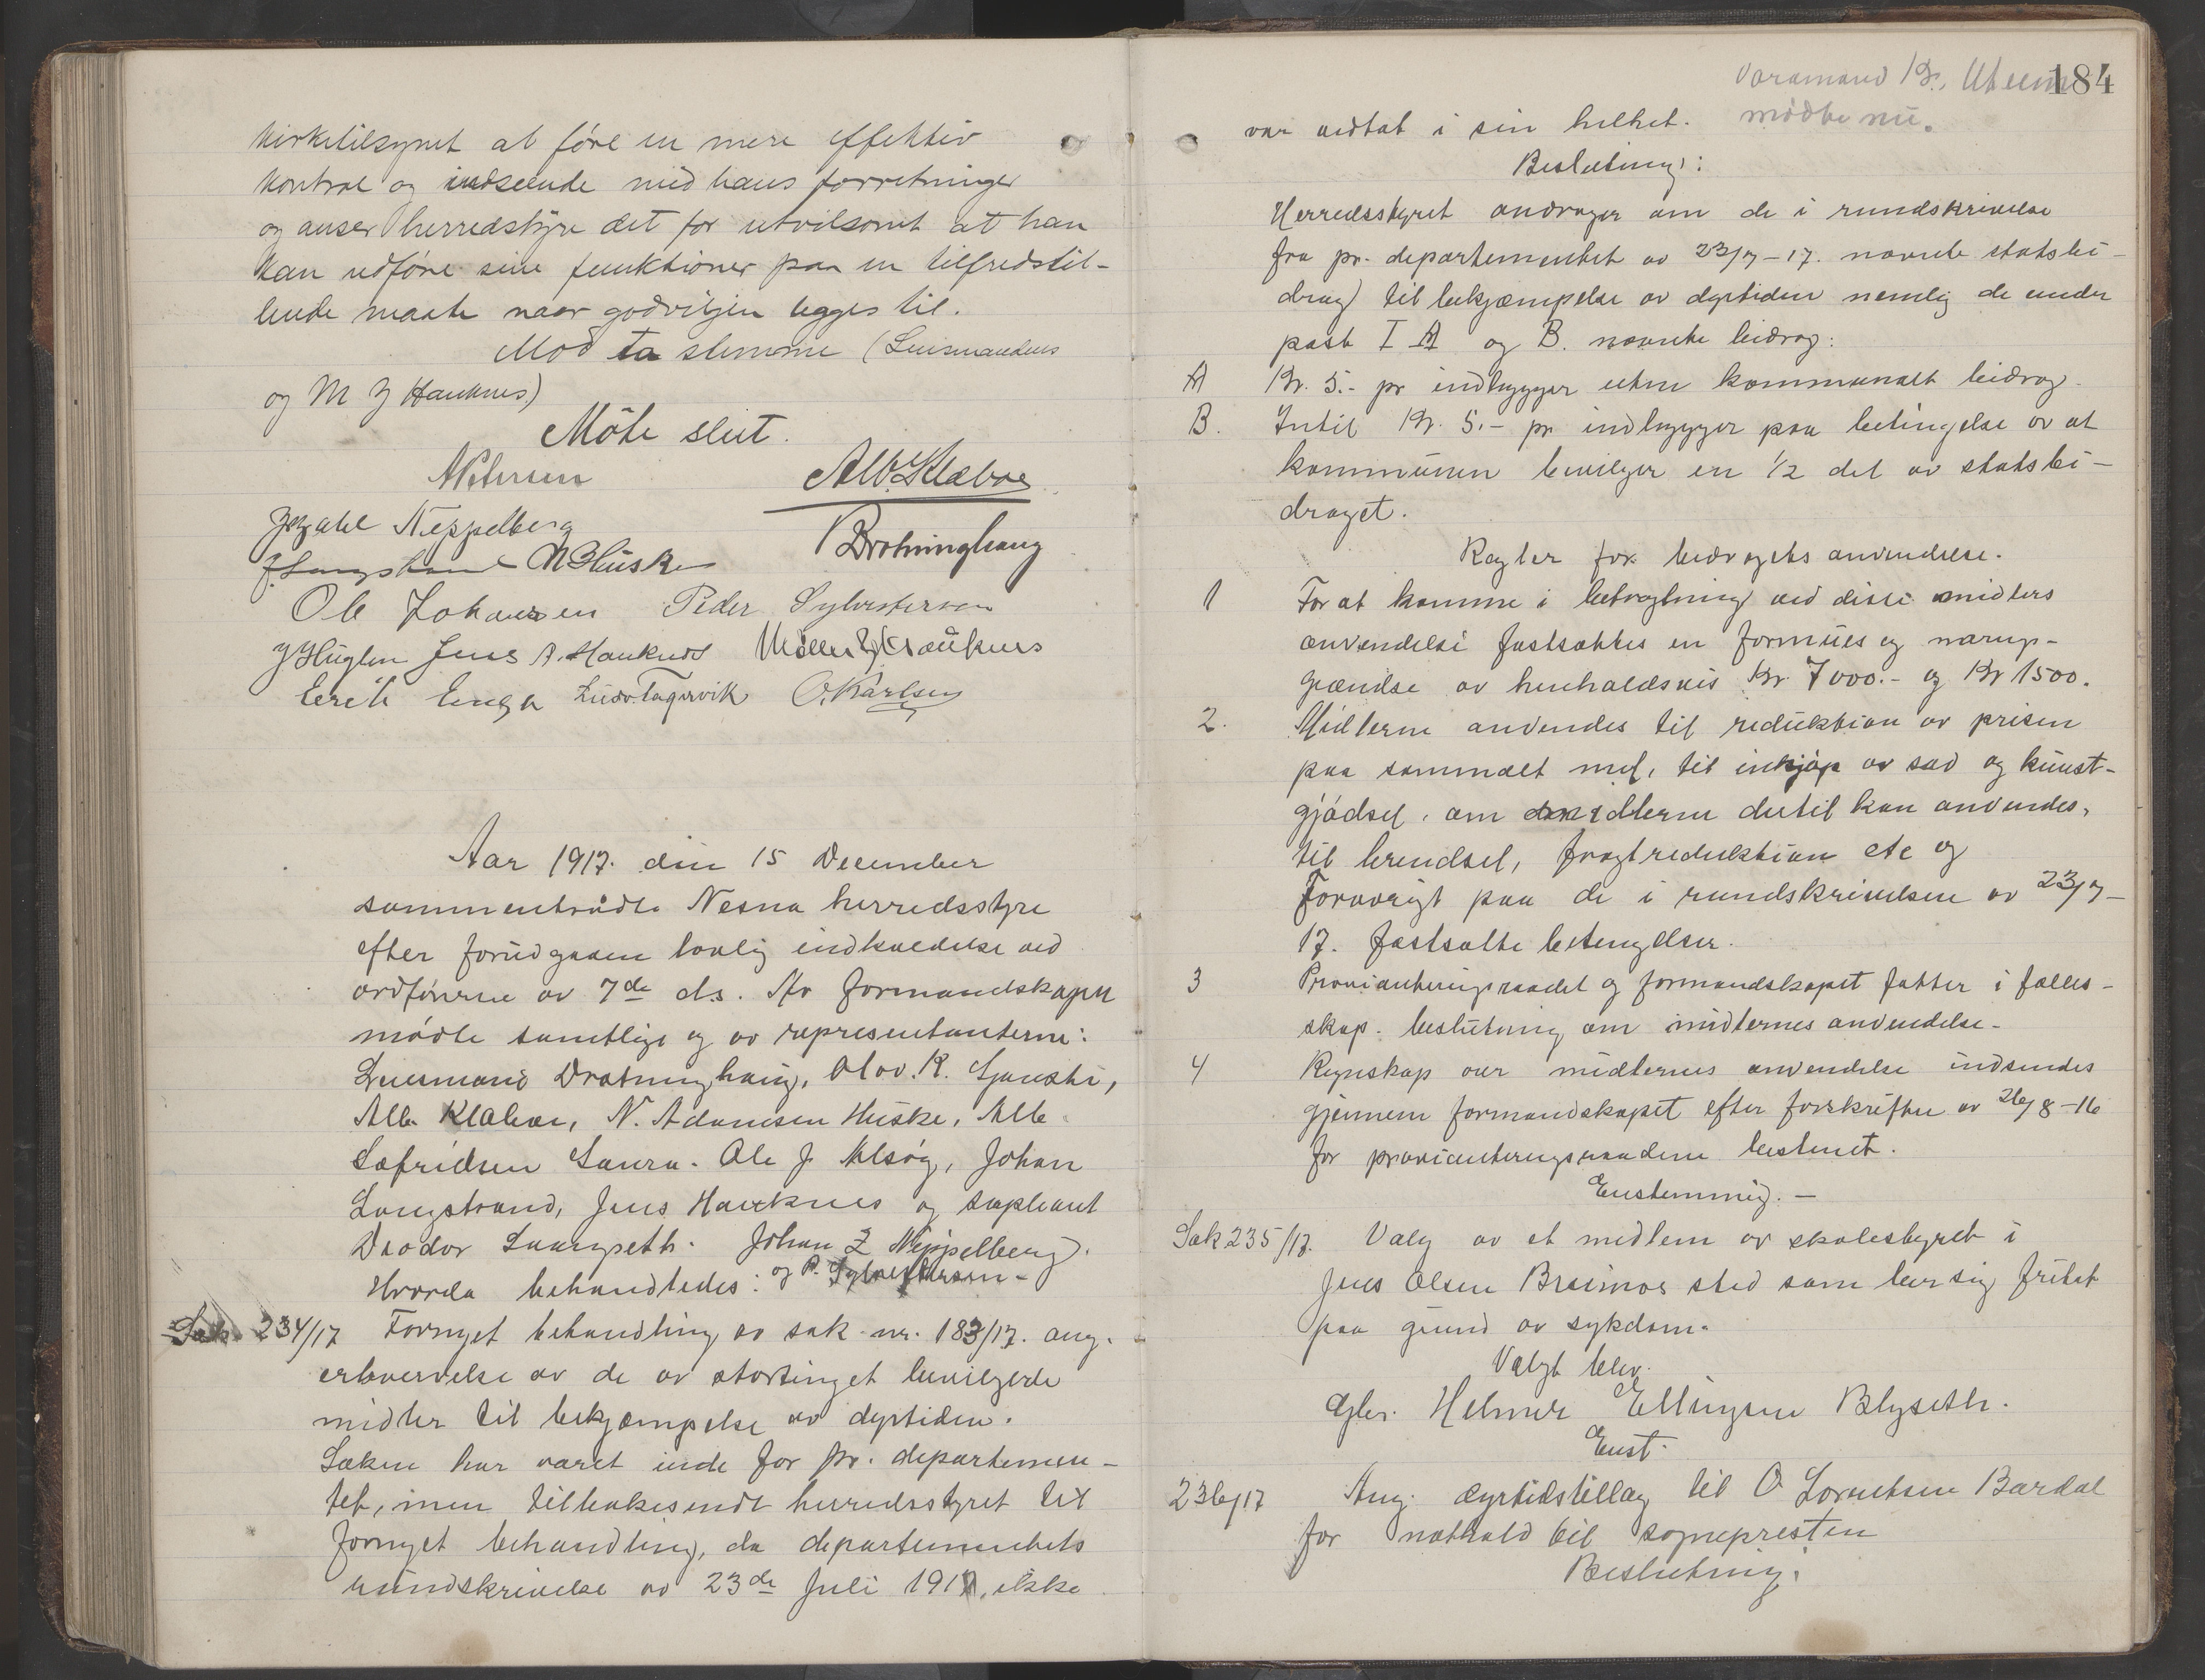 kirketilsynet at före en mere effektiv
kontrol og indseende med hans forretninger
og anser herredstyre det for utvilsomt at han
kan udföre sine funktioner paa en tilfredstil-
lende maate naar godviljen legges til.
Mod to stemme (Lensmandens
og M Z Hauknes)
Möte slut.
A Petersen Alb. Klæboe
Johan Z Neppelberg Drotninghaug
J. Langstrand N A Huske
Ole Johansen Peder Sylvestersen
J Huglen Jens A. Hauknes Meier Z Hauknes
Erik Enga Ludv. Fagervik O. Karlsen
Aar 1917. den 15 December
sammentraadte Nesna herredsstyre
efter forudgaaen lovlig indkaldelse ved
ordföreren av 7de ds. Av formandskapet
mödte samtlige og av representanterne:
Lensmand Drotninghaug, Olov. R. Sjonshi,
Alb. Klæboe, N. Adamsen Huske, Alb.
Sefridsen Saura. Ole J. Alsög, Johan
Langstrand, Jens Hauknes og supleant
Deodor Laangseth. Johan Z Neppelberg.
Hvorda behandledes: og P. Sylvestersen-
Sak 234/17 Fornyet behandling av sak nr. 183/17. ang.
erhvervelse av de av stortinget bevilgede
midler til bekjæmpelse av dyrtiden.
Saken har været inde for pr. departemen-
tet, men tilbakesendt herredsstyret til
fornyet behandling, da departementets
rundskrivelse av 23de Juli 1917, ikke
184
Varamand Kr. Utheim
mödte nu.
var vedtat i sin helhet.
Beslutning:
Herredsstyret andrager om de i rundskrivelse
fra pr. departementet av 23/7-17. nævnte statsbi-
drag til bekjæmpelse av dyrtiden nemlig de under
post I A og B. nævnte bidrag:
A Kr. 5.- pr indbygger uten kommunalt bidrag.
B. Intil Kr. 5.- pr indbygger paa betingelse av at
kommunen bevilger en 1/2 del av statsbi-
draget.
Regler for bidragets anvendelse.
1 For at komme i betragtning ved disse midlers
anvendelse fastsættes en formues og næring-
grændse av henholdsvis Kr. 7000.- og Kr 1500.
2. Midlerne anvendes til reduktion av prisen
paa sammalt mel, til inkjöp av sæd og kunst-
gjödsel, om midlerne dertil kan anvendes,
til brendsel, fragtreduktion etc og
Foravrigt paa de i rundskrivelsen av 23/7-
17. fastsatte betingelser.
3 Provianteringsraadet og formandskapet fatter i fælles-
skap. beslutning om midlernes anvendelse.
4 Regnskap over midlernes anvendelse indsendes
gjennem formandskapet efter forskriften av 26/8-16
for provianteringsraadene bestemt.
Enstemmig. -
Sak 235/17. Valg av et medlem av skolestyret i
Jens Olsen Breimos sted som ber sig fritat
paa grund av sykdom.
Valgt blev.
Gbr. Helmer Ellingsen Blyseth.
Enst.
236/17 Ang. dyrtidstillæg til O Lorentsen Bardal
for nathold til sognepresten
Beslutning: